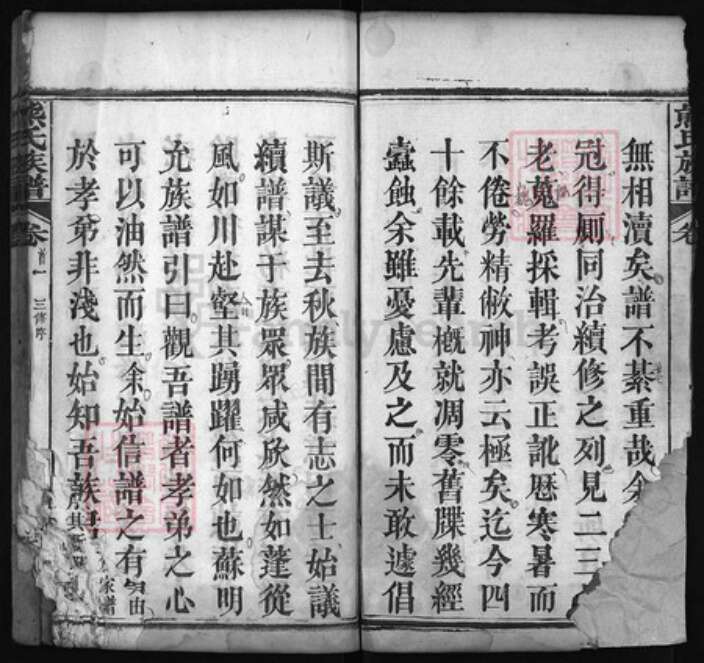 無相瀆矣譜不綦重哉余
冠得厠同治續修之列見二三
老蒐羅採輯考誤正訛歷寒暑而
不倦勞精敝神亦云極矣迄今四
十餘載先輩槪就凋零舊牒幾經
蠹蝕余雖憂慮及之而未敢遽倡
斯議至去秋族間有志之士始議
續譜謀于族眾眾咸欣然如蓬從
風如川赴壑其踴躍何如也蘇明
允族譜引曰觀吾譜者孝弟之心
可以油然而生余始信譜之有由
於孝弟非淺也始知吾族
熊氏族譜
卷首
三修序
熊氏族譜
卷
家譜